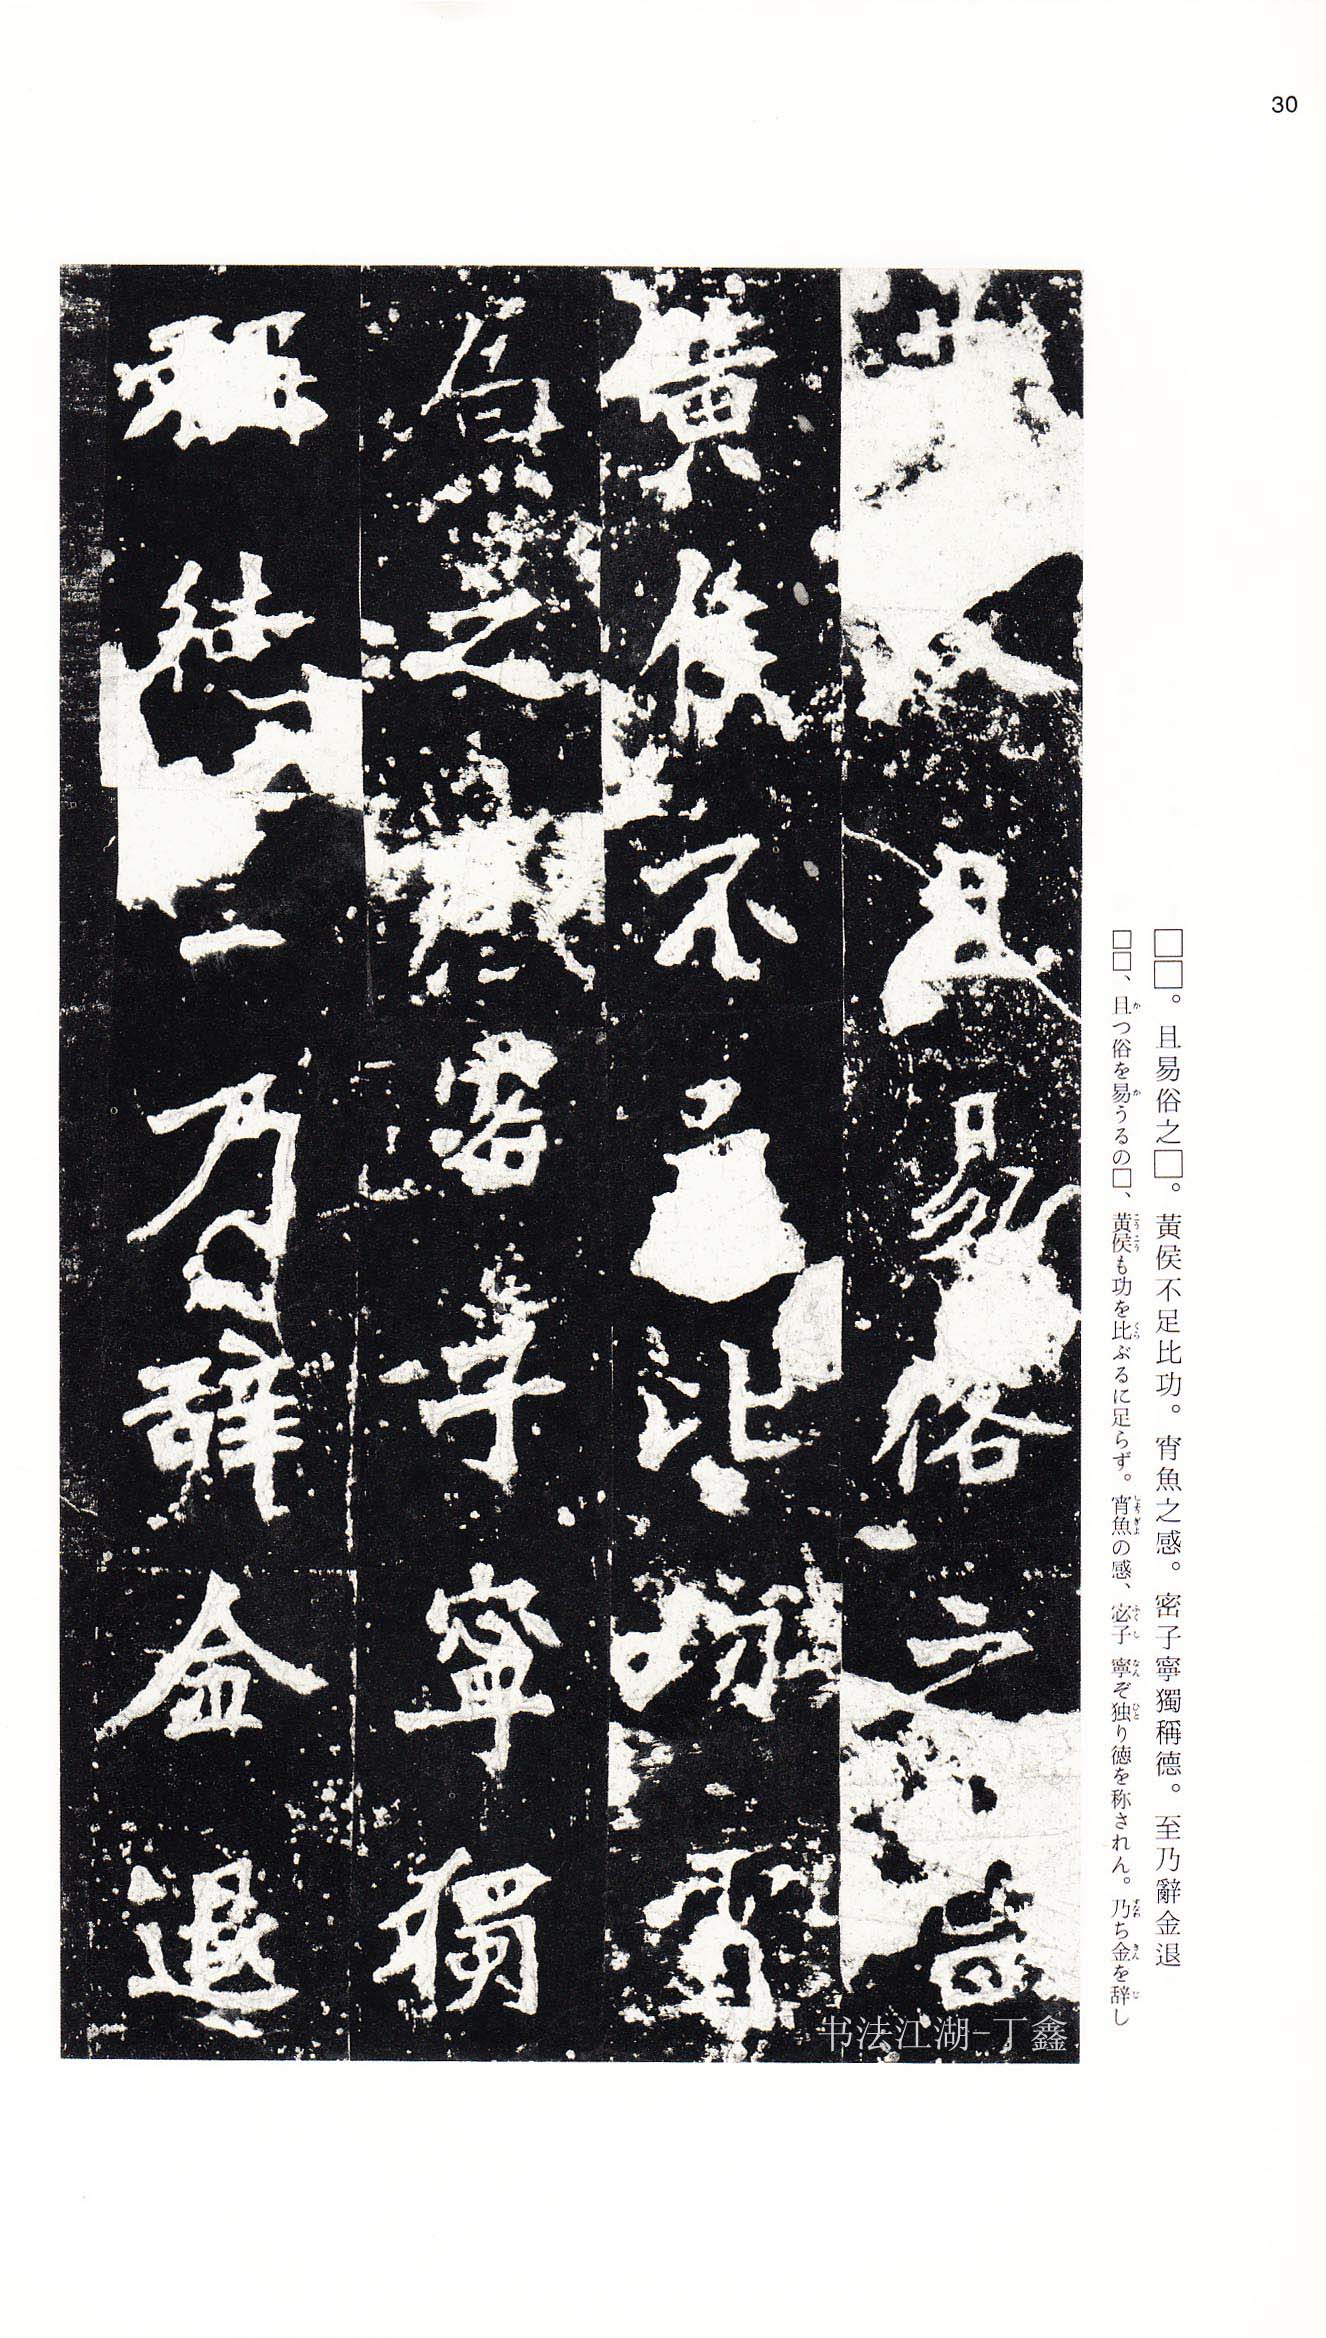 30
□□。且易俗之□。黃侯不足比功。宵魚之感。密子寧獨稱德。至乃辭金退
□□、且つ俗を易うるの□、黄侯も功を比ぶるに足らず。宵魚の感、宓子寧ぞ独り徳を称されん。乃ち金を辞し
且易俗之
黃侯不足比功宵
魚之感密子寧獨
稱德至乃辭金退
书法江湖-丁鑫